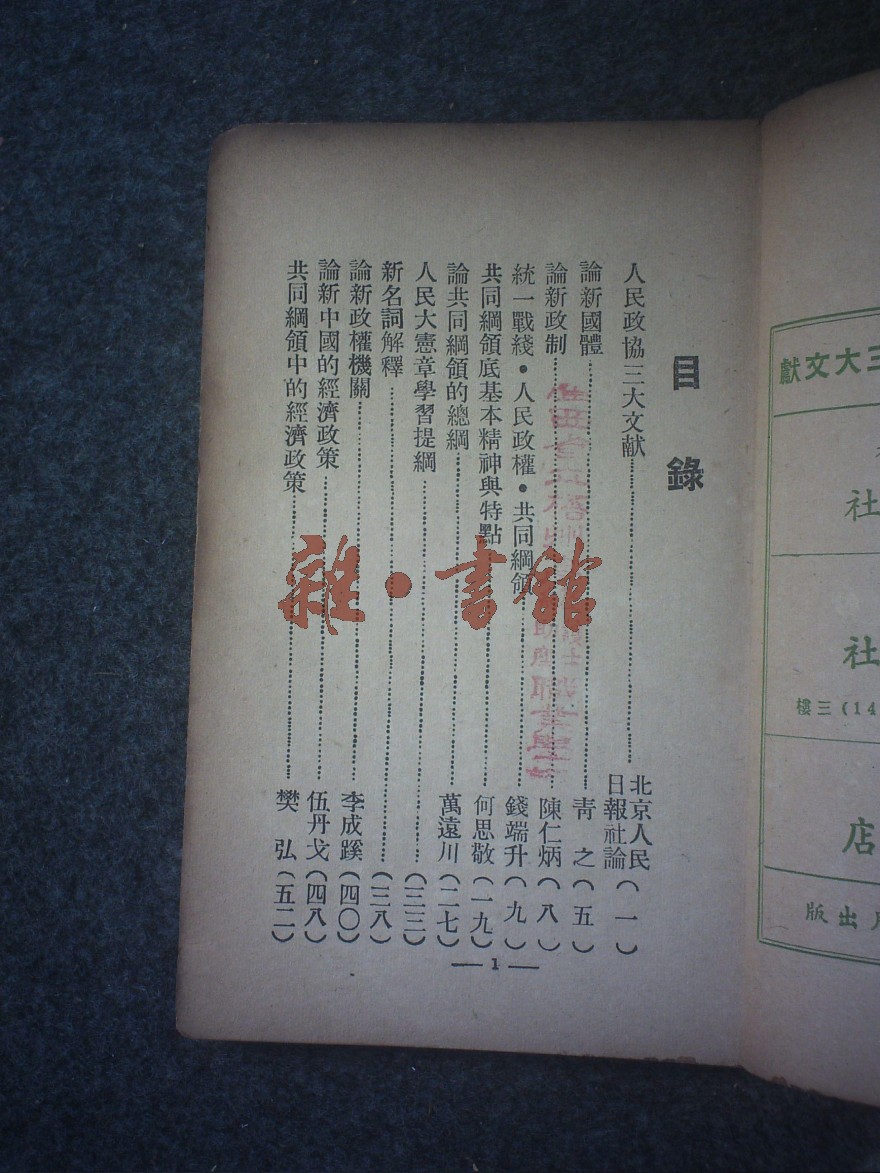 目錄
人民政協三大文献 北京人民日報社論(一)
論新國體 青之(五)
論新政制 陳仁炳(八)
統一戰綫•人民政權•共同綱領 錢端升(九)
共同綱領底基本精神與特點 何思敬(一九)
論共同綱領的總綱 萬遠川(二七)
人民大憲章學習提綱 (三三)
新名詞解釋 (三八)
論新政權機關 李成蹊(四〇)
論新中國的經濟政策 伍丹戈(四八)
共同綱領中的經濟政策 樊弘(五二)
— 1 —
雜•書館
三大文獻
社
社
三樓
店
出版